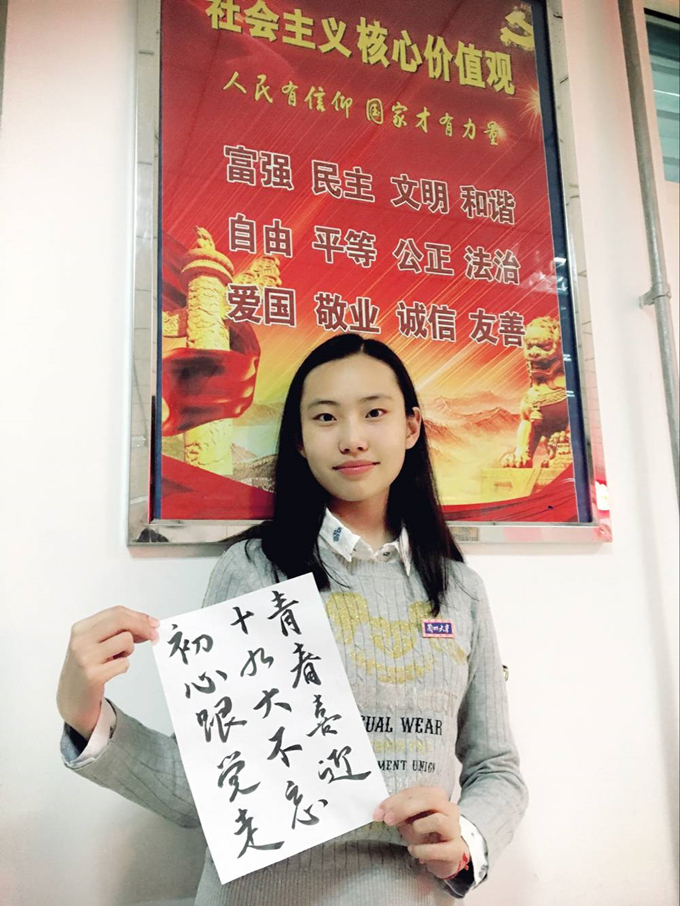 社会主义核心价值观
人民有信仰 国家才有力量
富强 民主 文明 和谐
自由 平等 公正 法治
爱国 敬业 诚信 友善
青春喜迎
十九大不忘
初心跟党走
兰州大学
UAL WEAR
MENT UNION